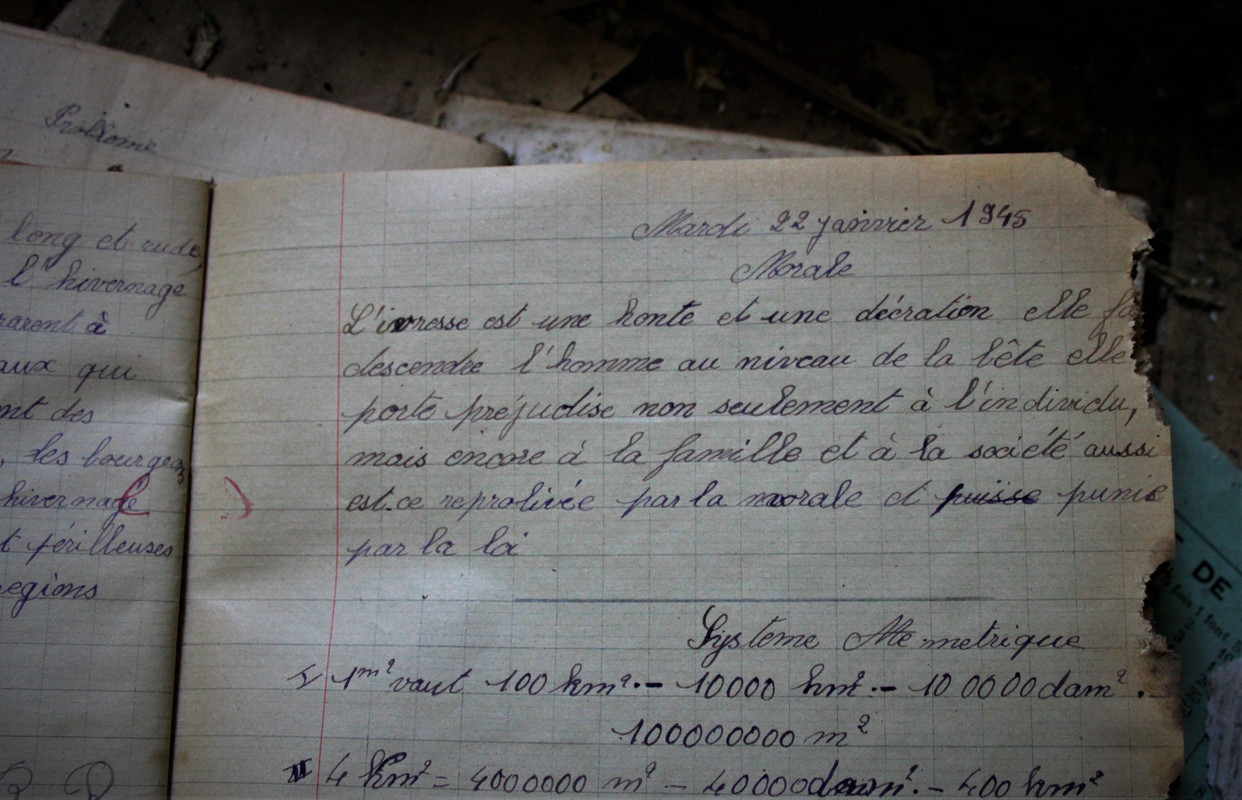 Problème
long et rude,
l'hivernage
parent à
aux qui
nt des
, les bourgeo
hivernage
t périlleuses
egions
Mardi 22 janvier 1945
Morale
L'ivresse est une honte et une décration elle fa
descendre l'homme au niveau de la bête elle
porte préjudise non seulement à l'individu,
mais encore à la famille et à la société aussi
est-ce reprolivée par la morale et puisse punie
par la loi
Système Me metrique
I 1m² vaut 100 km². - 10000 hm². - 100000dam².
100000000 m²
II 4 Km² = 4000000 m² - 40000dam². - 400 hm²
DE